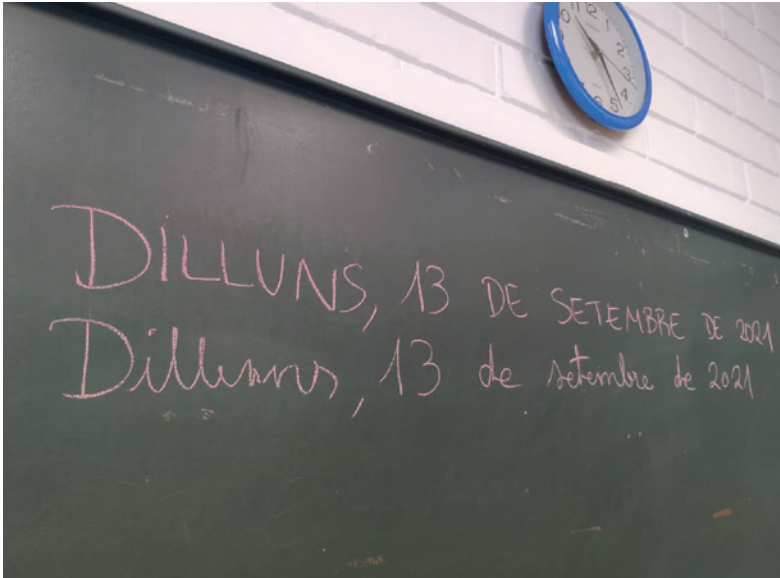 12
1
2
3
4
5
6
DILLUNS, 13 DE SETEMBRE DE 2021
Dilluns, 13 de setembre de 2021